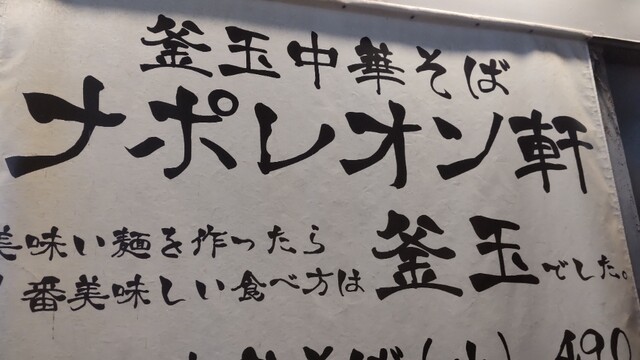 釜玉中華そば
ナポレオン軒
美味い麺を作ったら
番美味しい食べ方は釜玉でした。
そば(小) 490